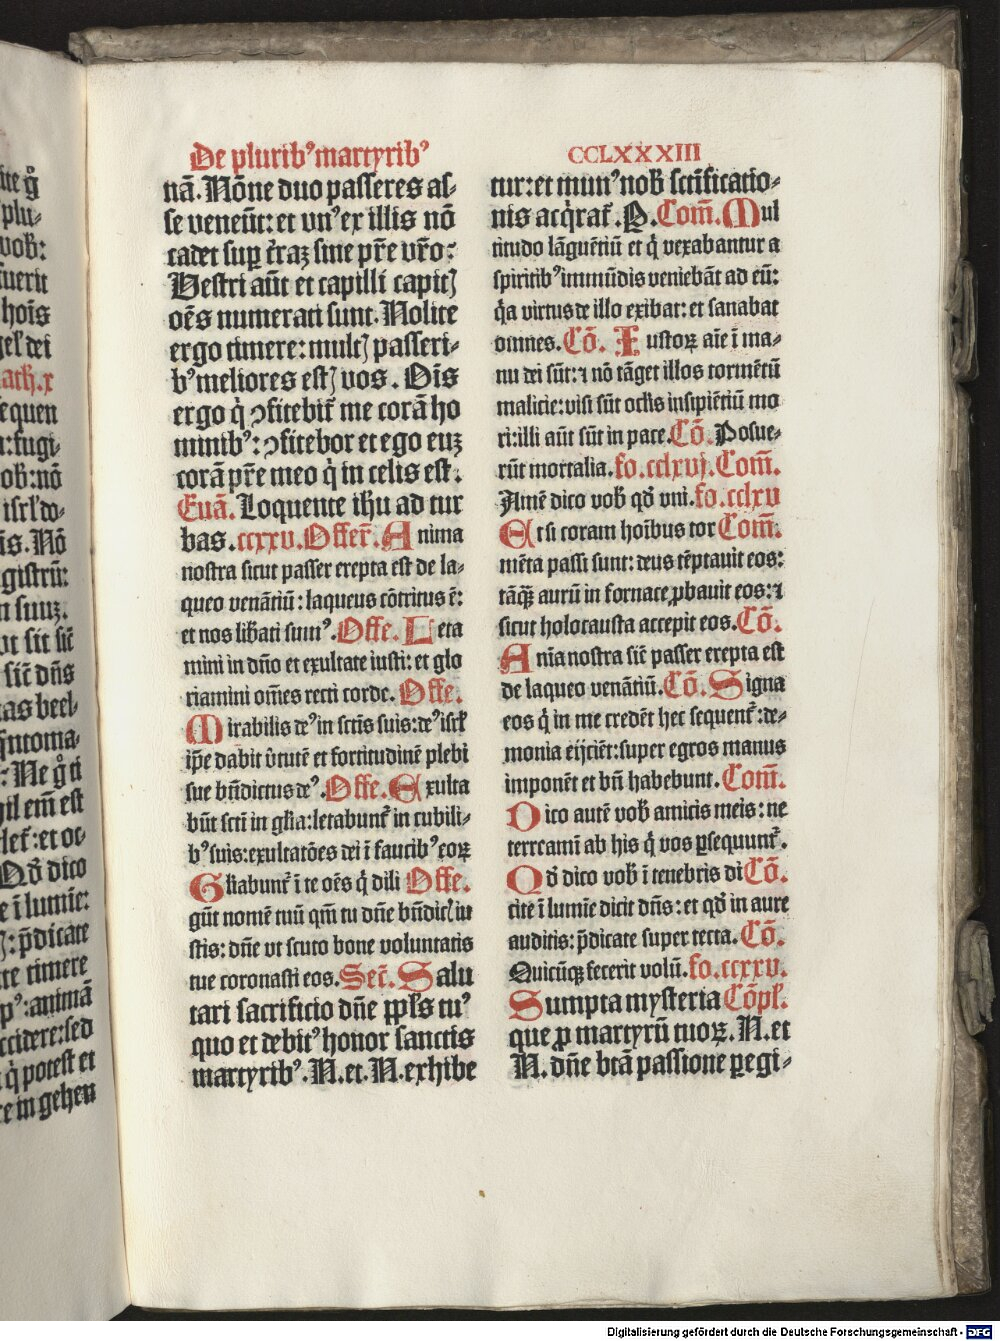 De plurib⁹ martyrib⁹
CCLXXXIII
nā. Nōne duo passeres as⸗
se veneūt: et vn⁹ ex illis nō
cadet sup̱ tr̄aꝫ sine pr̄e vr̄o:
Vestri aūt et capilli capitꝭ
oēs numerati sunt. Nolite
ergo timere: multꝭ passeri⸗
b⁹ meliores estꝭ vos. Oīs
ergo q̇ ꝯfitebit᷑ me corā ho
minib⁹: ꝯfitebor et ego euꝫ
corā pr̄e meo q̇ in celis est.
Euā. Loquente ihū ad tur
bas. ccxxv. Offert̄. Anima
nostra sicut passer erepta est de la⸗
queo venātiū: laqueus cōtritus ē:
et nos lib̄ati sum⁹. Offe. Leta
mini in dn̄o et exultate iusti: et glo
riamini om̄es recti corde. Offe.
Mirabilis de⁹ in sctīs suis: de⁹ isrl̄
ip̄e dabit v̇tutē et fortitudinē plebi
sue bn̄dictus de⁹. Offe. Exulta
būt sctī in gl̄ia: letabunt᷑ in cubili⸗
b⁹ suis: exultatōes dei ī faucib⁹ eoꝝ
Gl̄iabunt᷑ ī te oēs q̇ dili Offe.
gūt nomē tuū qm̄ tu dn̄e bn̄dicꝭ iu
stis: dn̄e vt scuto bone voluntatis
tue coronasti eos. Secr̄. Salu
tari sacrificio dn̄e ppl̄s tu⁹
quo et debit⁹ honor sanctis
martyrib⁹. N. et. N. exhibe
tur: et mun⁹ nob̄ sctīficatio⸗
nis acq̇rat᷑. P. Com̄. Mul
titudo lāguētiū et q̇ vexabantur a
spiritib⁹ immūdis veniebāt ad eū:
q̇a virtus de illo exibat: et sanabat
omnes. Cō. Iustoꝝ aīe ī ma⸗
nu dei sūt: ⁊ nō tāget illos tormētū
malicie: visi sūt oclis insipiētiū mo
ri: illi aūt sūt in pace. Cō. Posue⸗
rūt mortalia. fo. cclxvj. Com̄.
Amē dico vob̄ qd̄ vni. fo. cclxv
Et si coram hoībus tor Com̄.
mēta passi sunt: deus tēptauit eos:
tāq̄ꝫ aurū in fornace ꝓbauit eos: ⁊
sicut holocausta accepit eos. Cō.
Anīa nostra sic̄ passer erepta est
de laqueo venātiū. Cō. Signa
eos q̇ in me credēt hec sequent᷑: de⸗
monia eijciēt: super egros manus
imponēt et bn̄ habebunt. Com̄.
Dico autē vob̄ amicis meis: ne
terreamī ab his q̇ vos ꝑsequunt᷑.
Qd̄ dico vob̄ ī tenebris di Cō.
cite ī lumīe dicit dn̄s: et qd̄ in aure
auditis: p̄dicate super tecta. Cō.
Quicūqꝫ fecerit volū. fo. ccxxv.
Sumpta mysteria Cōpl̄.
que ꝓ martyrū tuoꝝ. N. et
N. dn̄e btā passione ꝑegi⸗
Digitalisierung gefördert durch die Deutsche Forschungsgemeinschaft - DFG